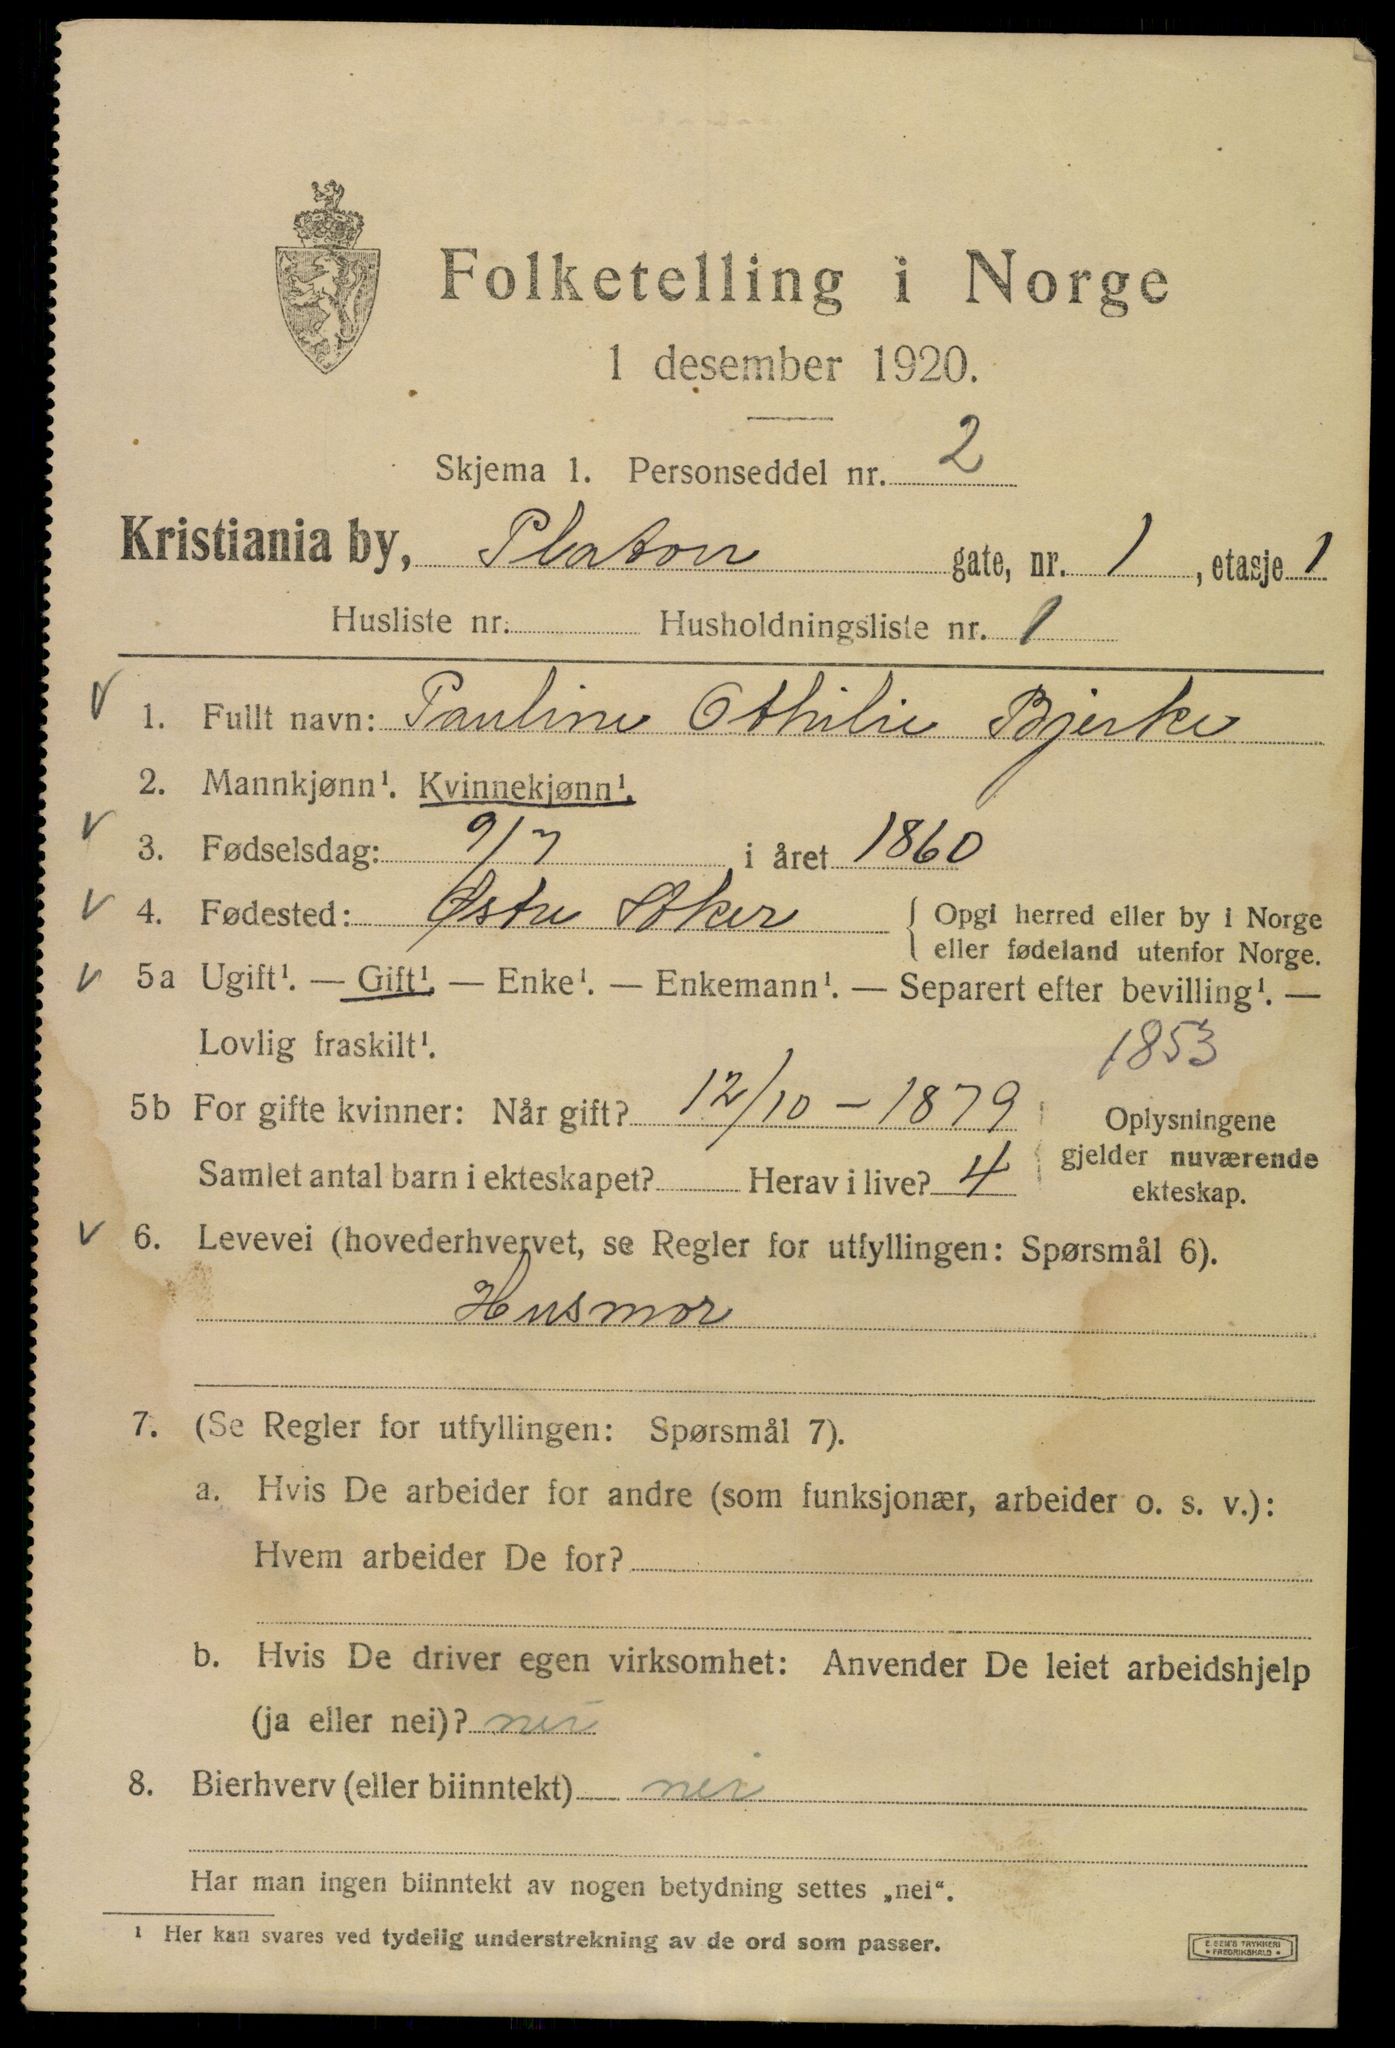 Folketelling i Norge
1 desember 1920.
Skjema 1. Personseddel nr. 2
Kristiania by, Platon gate, nr. 1, etasje 1
Husliste nr. Husholdningsliste nr. 1
1. Fullt navn: Pauline Othilie Bjerke
2. Mannkjønn¹. Kvinnekjønn¹.
3. Fødselsdag: 9/7 i året 1860
4. Fødested: Østre Aker { Opgi herred eller by i Norge
eller fødeland utenfor Norge.
5a Ugift¹. — Gift¹. — Enke¹. — Enkemann¹. — Separert efter bevilling¹. —
Lovlig fraskilt¹. 1853
5b For gifte kvinner: Når gift? 12/10 – 1879 Oplysningene
gjelder nuværende
Samlet antal barn i ekteskapet? Herav i live? 4 ekteskap.
6. Levevei (hovederhvervet, se Regler for utfyllingen: Spørsmål 6).
Husmor
7. (Se Regler for utfyllingen: Spørsmål 7).
a. Hvis De arbeider for andre (som funksjonær, arbeider o. s. v.):
Hvem arbeider De for?
b. Hvis De driver egen virksomhet: Anvender De leiet arbeidshjelp
(ja eller nei)? nei
8. Bierhverv (eller biinntekt) nei
Har man ingen biinntekt av nogen betydning settes „nei“.
¹ Her kan svares ved tydelig understrekning av de ord som passer.
E. SEM'S TRYKKERI
• FREDRIKSHALD •